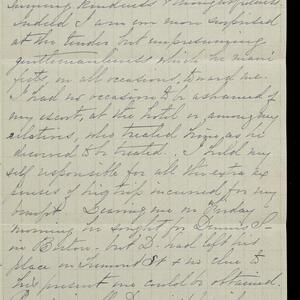 kindness & thoughtfulness
indeed I was even more surprised
at the tender, but unpresuming
gentlemanliness which he mani-
fests, on all occasions, toward me.
I had no occasion to be ashamed of
my escort, at the hotel or among my
relatives, who treated him, as he
deserved to be treated. I held my
self responsible for all the extra ex
penses of his trip incurred for my
benefit. Leaving me on Friday
morning he sought for Dennis S-
in Boston, but D. had left his
place on Tremont St & no clue to
his present one could be obtained.